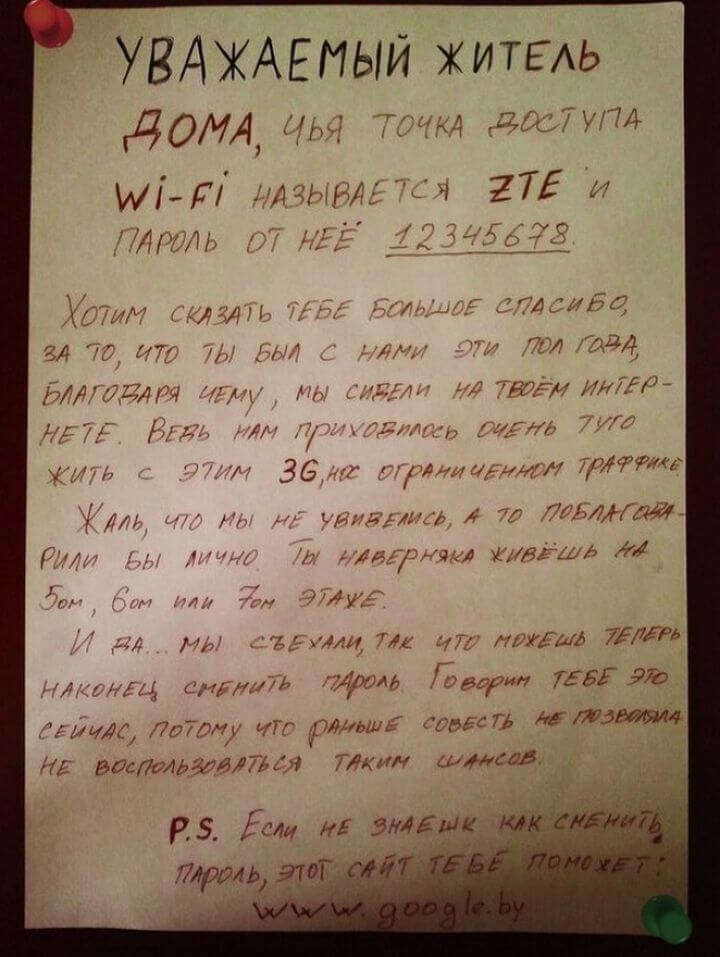 УВАЖАЕМЫЙ ЖИТЕЛЬ
ДОМА, ЧЬЯ ТОЧКА ДОСТУПА
Wi-Fi НАЗЫВАЕТСЯ ZTE И
ПАРОЛЬ ОТ НЕЁ 12345678.
Хотим сказать тебе большое спасибо,
за то, что ты был с нами эти пол года,
благодаря чему, мы сидели на твоём интер-
нете. Ведь нам приходилось очень туго
жить с этим 3G, на ограниченном траффике
Жаль, что мы не увиделись, а то поблагода-
рили бы лично. Ты наверняка живёшь на
5ом, 6ом или 7ом этаже.
И да... мы съехали, так что можешь теперь
наконец сменить пароль. Говорим тебе это
сейчас, потому что раньше совесть не позволяла
не воспользоваться таким шансов.
P.S. Если не знаешк как сменить
пароль, этот сайт тебе поможет:
www.google.by